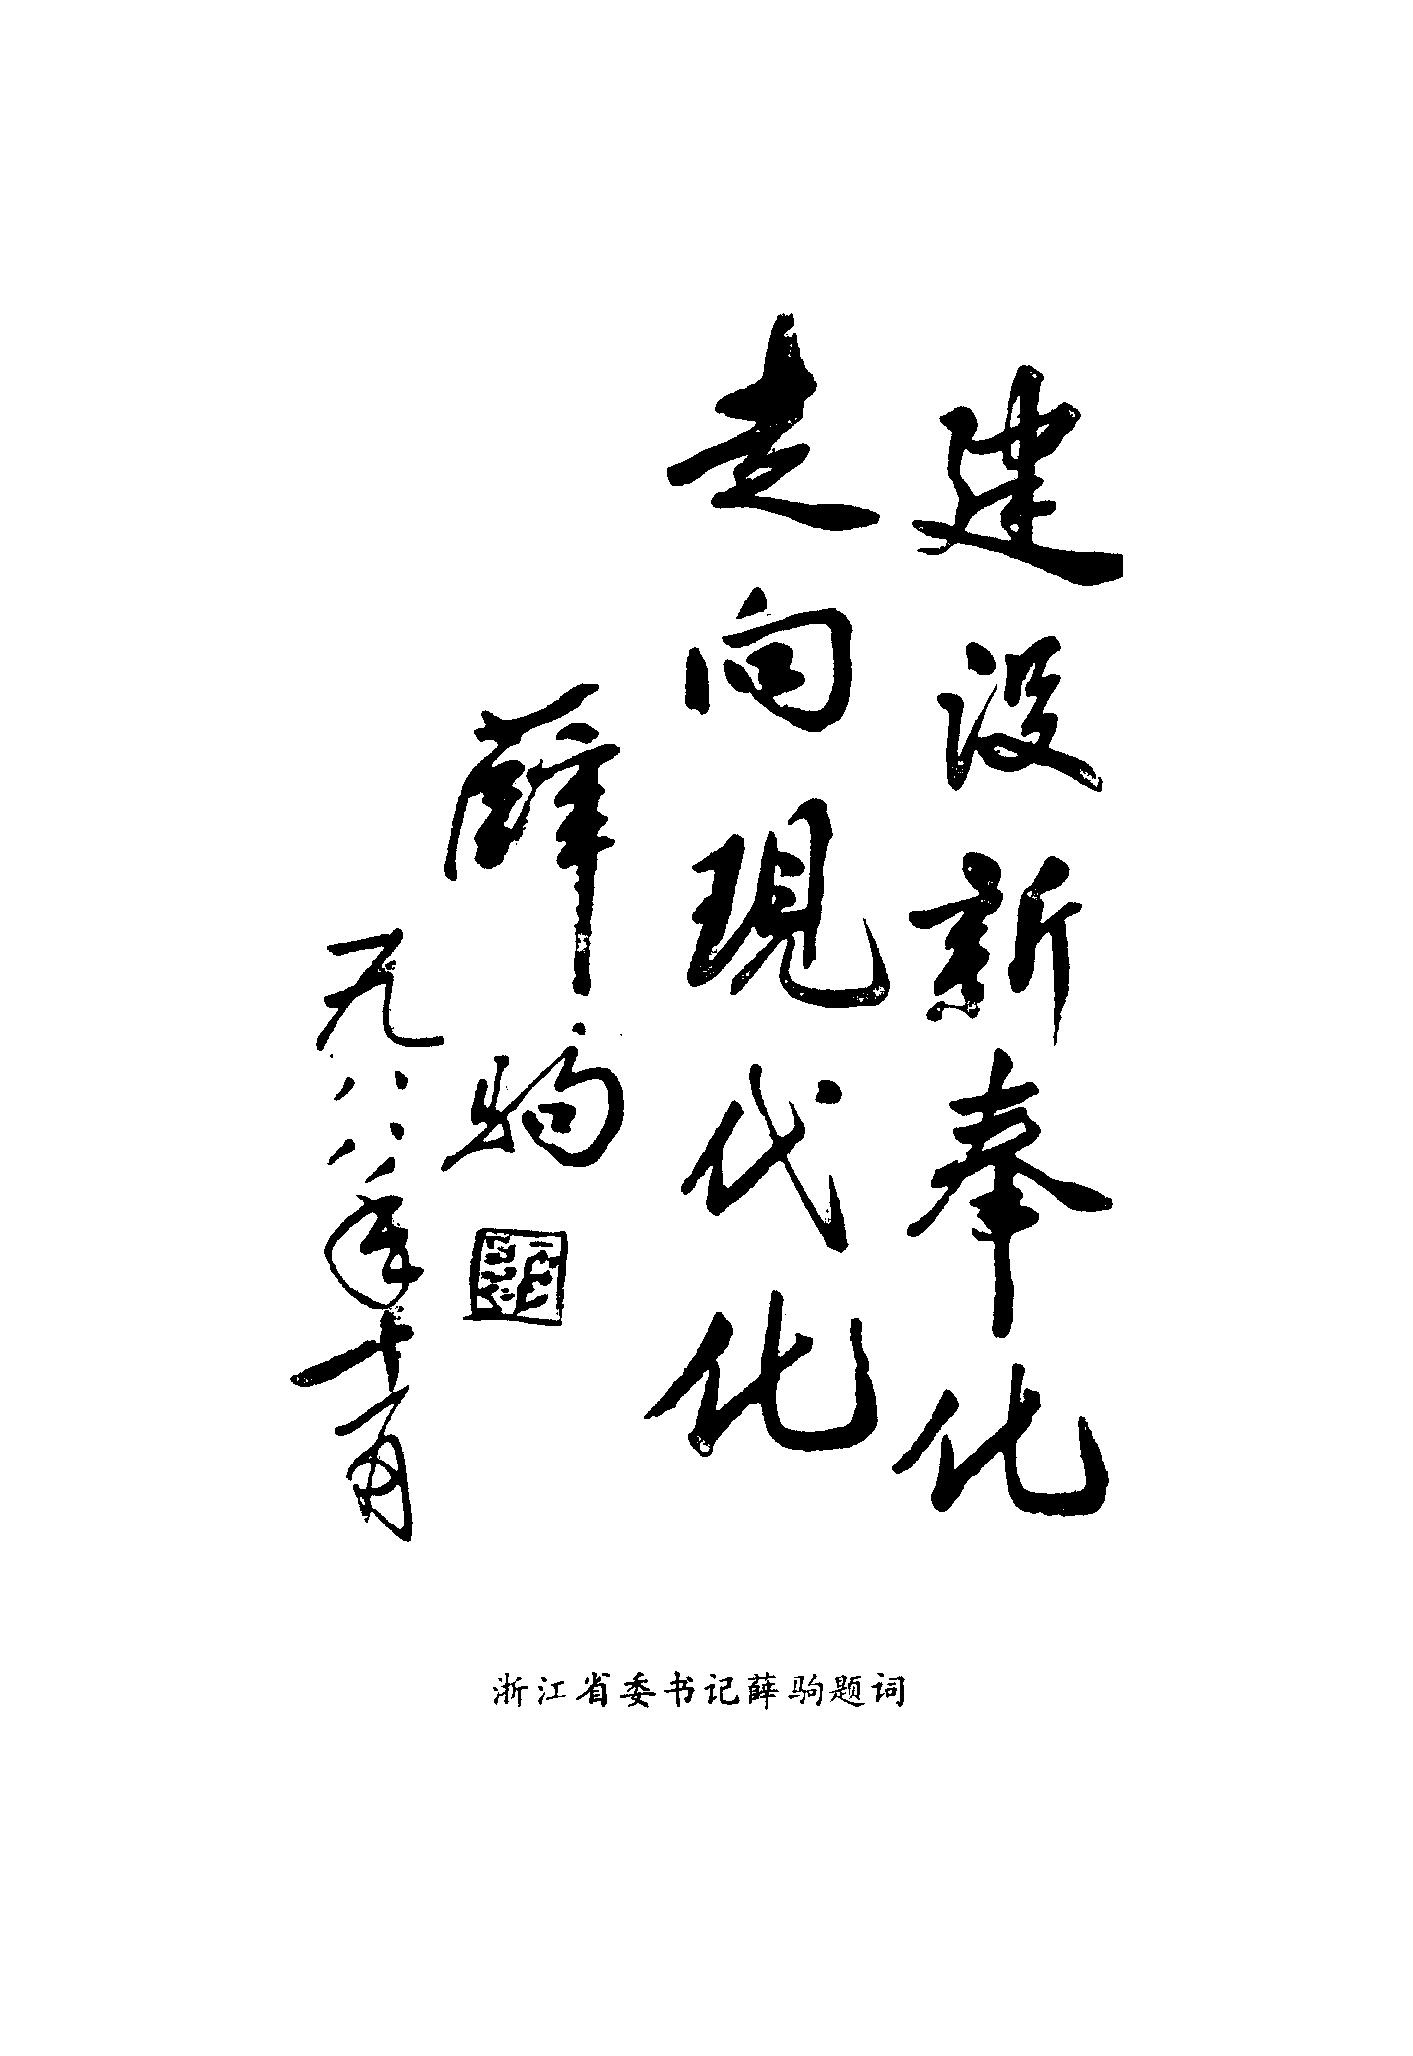 建设新奉化
走向现代化
薛驹
一九八八年十一月
浙江省委书记薛驹题词